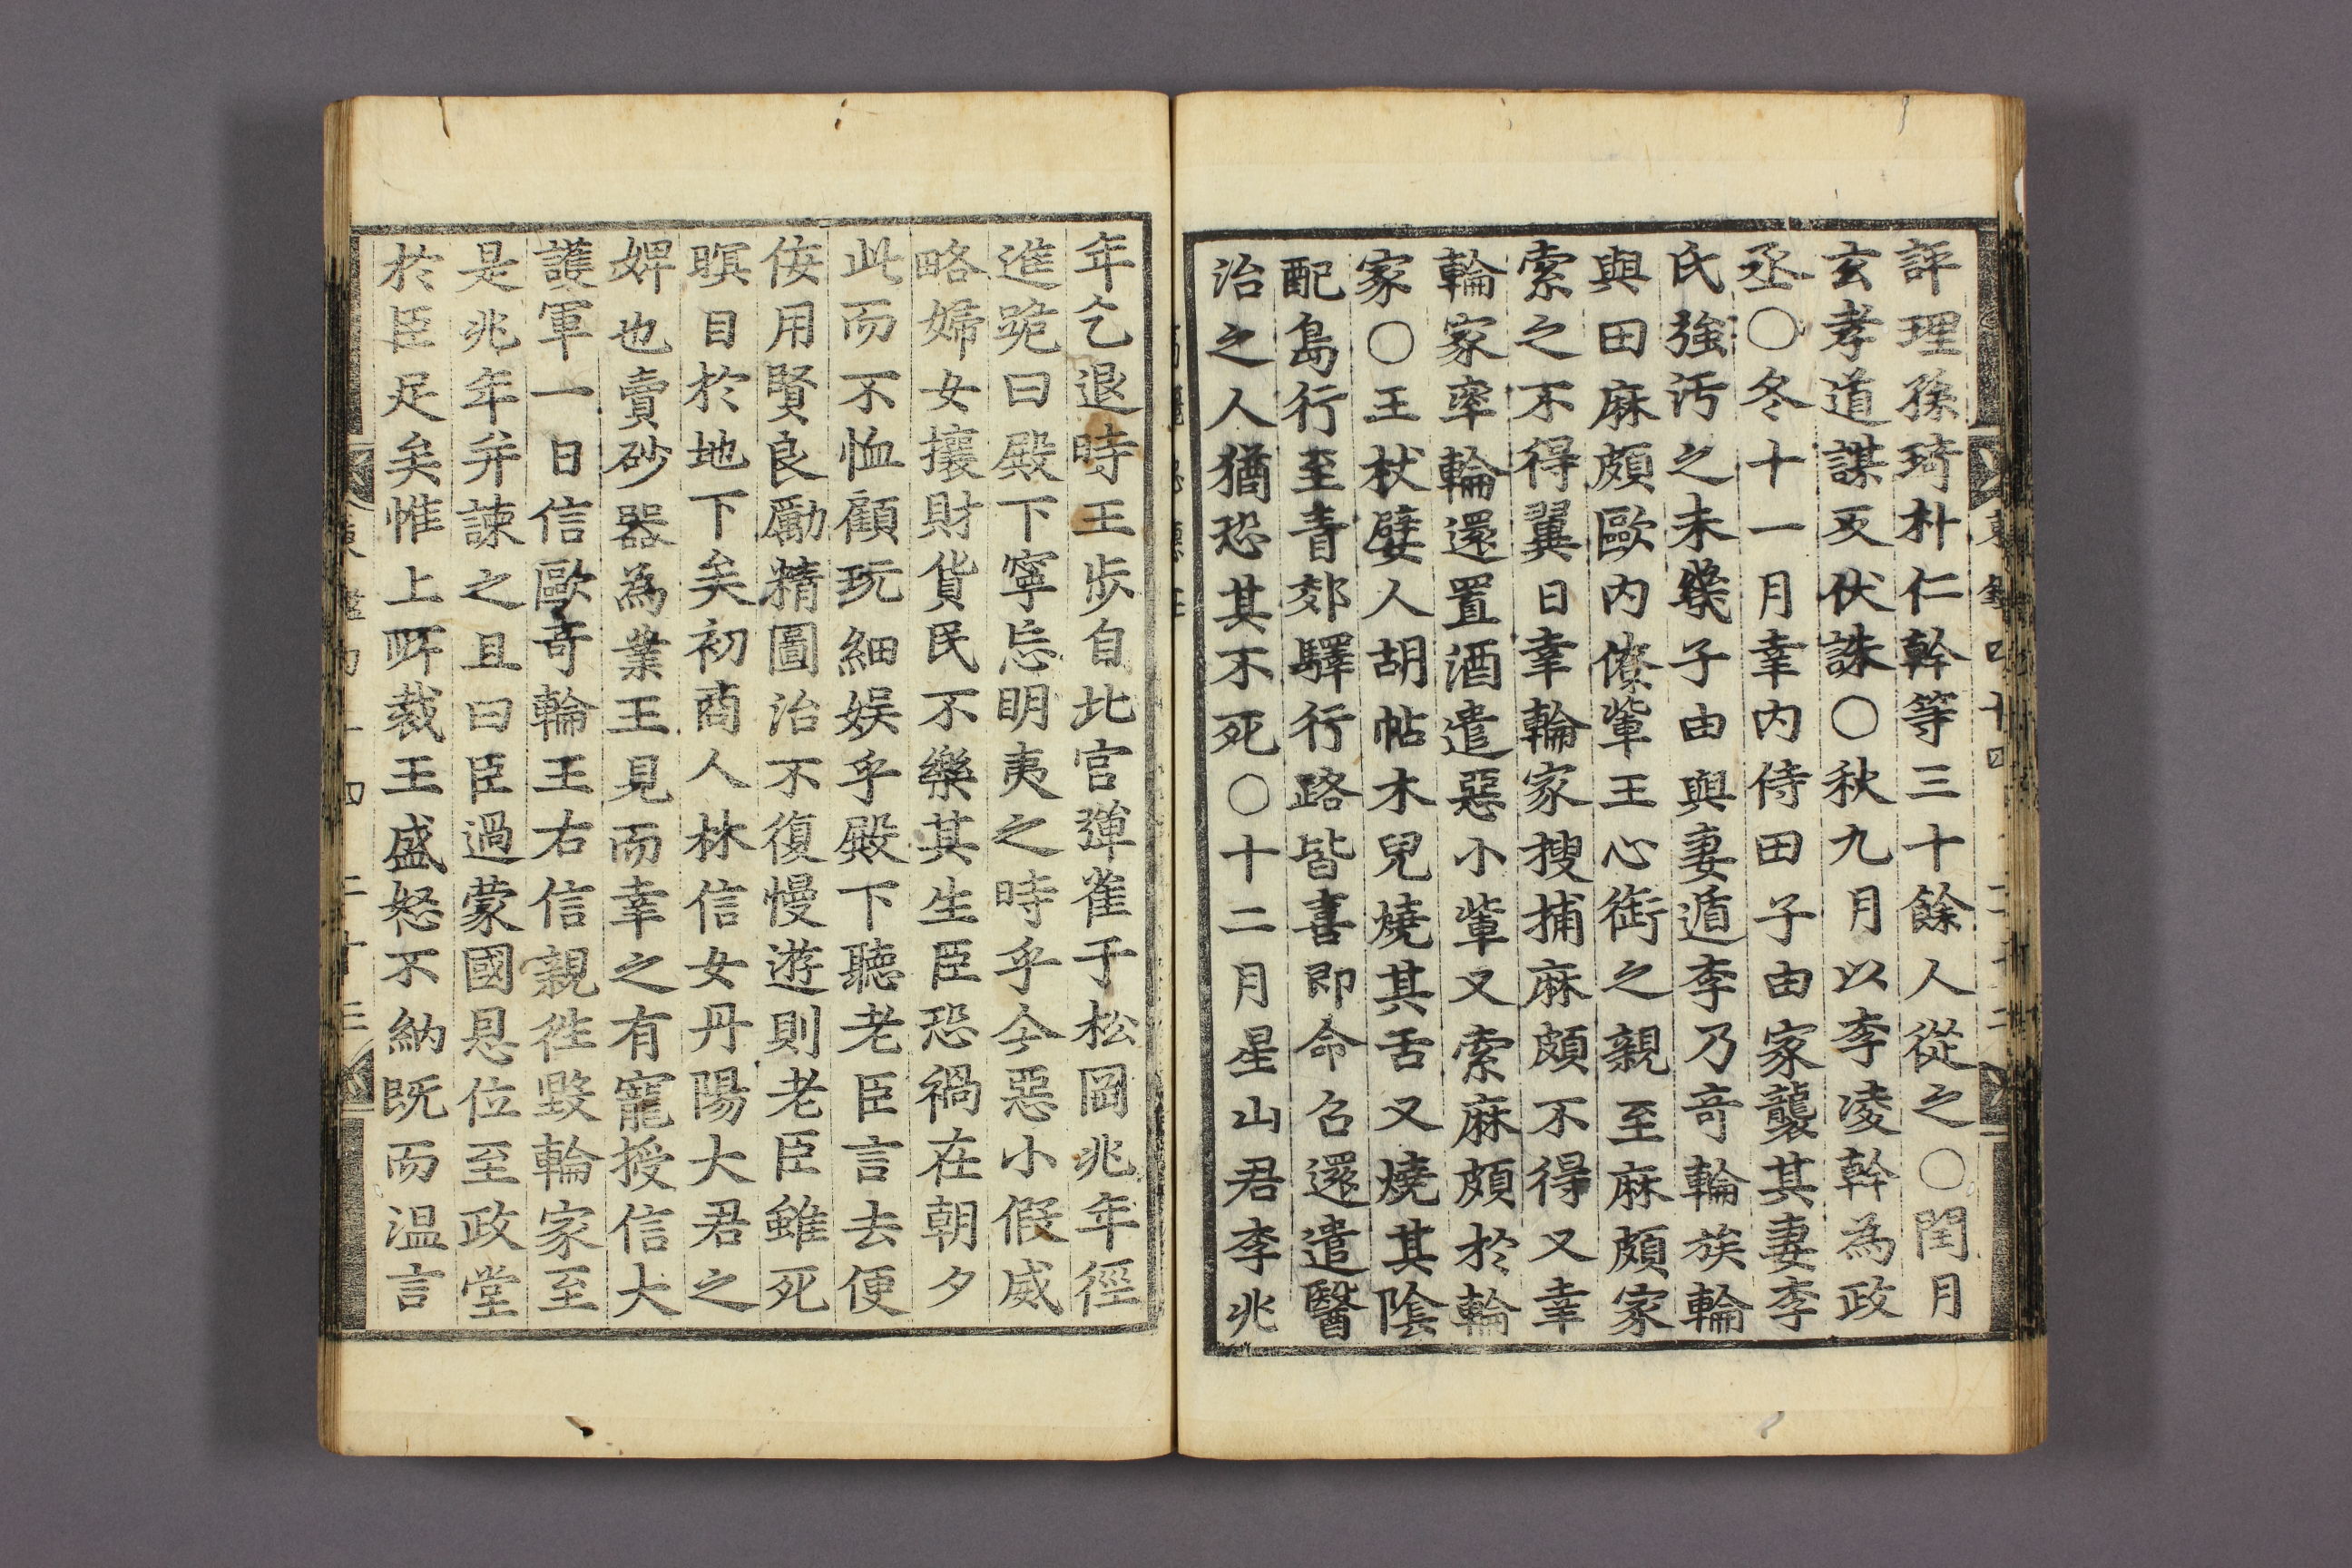 評理孫琦朴仁幹等三十餘人從之○閏月
玄孝道謀反伏誅○秋九月以李凌幹為政
丞○冬十一月幸內侍田子由家襲其妻李
氏強汚之未幾子由與妻遁李乃奇輪族輪
與田麻頗歐內僚輩王心銜之親至麻頗家
索之不得翼日幸輪家搜捕麻頗不得又幸
輪家率輪還置酒遣惡小輩又索麻頗於輪
家○王杖嬖人胡帖木兒燒其舌又燒其陰
配島行至青郊驛行路皆喜即命召還遣醫
治之人猶恐其不死○十二月星山君李兆
年乞退時王步自北宮彈雀于松岡兆年徑
進跪曰殿下寧忘明夷之時乎今惡小假威
略婦女攘財貨民不樂其生臣恐禍在朝夕
此而不恤顧玩細娛乎殿下聽老臣言去便
侫用賢良勵精圖治不復慢遊則老臣雖死
暝目於地下矣初商人林信女丹陽大君之
婢也賣砂器為業王見而幸之有寵授信大
護軍一日信歐奇輪王右信親徃毀輪家至
是兆年并諫之且曰臣過蒙國恩位至政堂
於臣足矣惟上所裁王盛怒不納既而温言